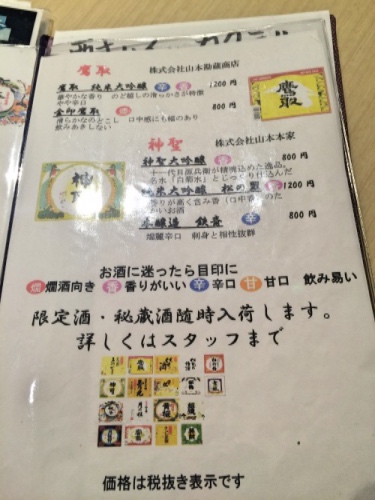 鷹取 株式会社山本勘蔵商店
鷹取 純米大吟醸 辛 香 1200円
華やかな香り のど越しの清らかさが特徴
やや辛口
金印鷹取 燗 800円
清らかなのどこし 口中感にも幅のあり
飲みあきしない
鷹取
神聖 株式会社山本本家
神聖大吟醸 香 800円
十一代目源兵衛が精魂込めた逸品。
名水「白菊水」とじっくり仕込んだ
純米大吟醸 松の翠 香 1200円
香りが高く含み香(口中香)のた
かいお酒
本醸造 鉄斎 辛 800円
端麗辛口 刺身と相性抜群
神聖
お酒に迷ったら目印に
燗 燗酒向き 香 香りがいい 辛 辛口 甘 甘口 飲み易い
限定酒・秘蔵酒随時入荷します。
詳しくはスタッフまで
価格は税抜き表示です